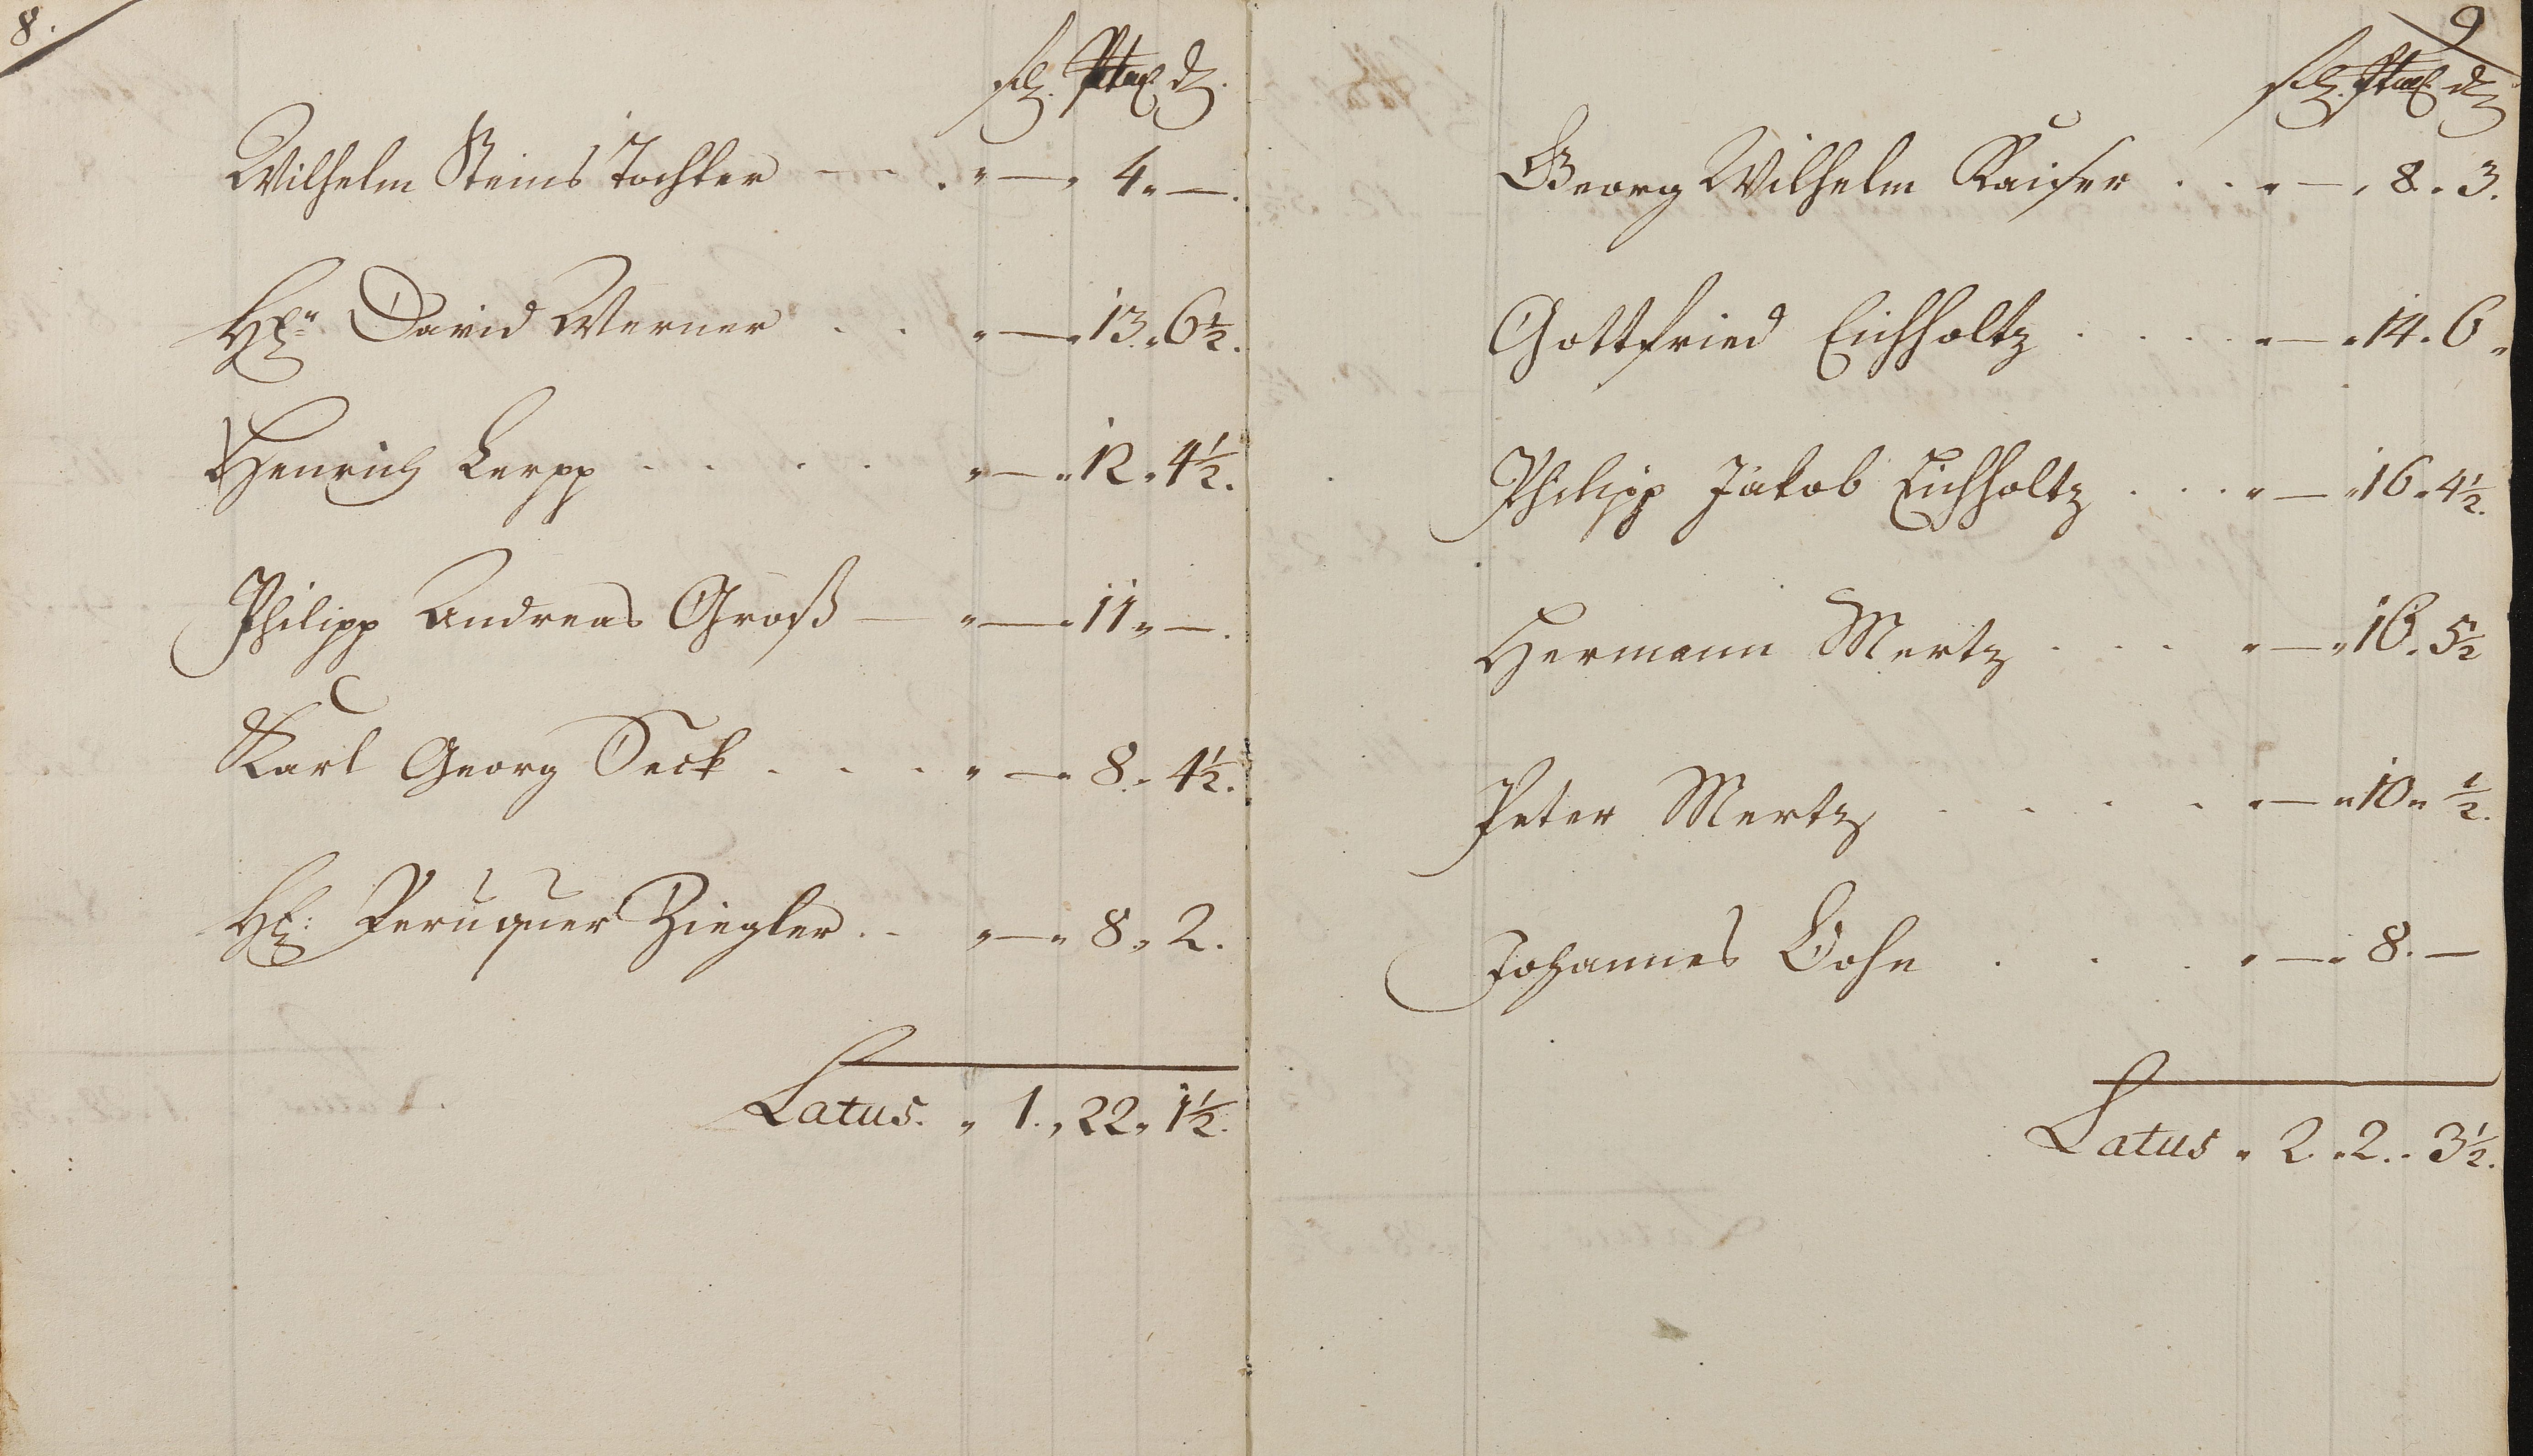 8.
fl. Stuf. d.
Wilhelm Steins Tochter — „ — „ 4 „ —.
Hn. David Werner . . „ — „ 13 „ 6½.
Henrich Lerpp . . . . „ — „ 12 „ 4½.
Philipp Andreas Groß — „ — „ 11 „ —.
Karl Georg Seck . . . „ — „ 8 „ 4½.
H. Peruquer Ziegler . . „ — „ 8 „ 2.
Latus. „ 1. „ 22 „ 1½.
9
fl. d
Georg Wilhelm Kaiser . . „ — „ 8. „ 3.
Gottfried Eichholtz . . . . „ — „ 14. 6 „
Philipp Jakob Eichholtz . . . „ — „ 16 „ 4½.
Hermann Mertz . . . „ — „ 16 „ 5½
Peter Mertz . . . . „ — „ 10 „ ½.
Johannes . . . „ — „ 8. —
Latus „ 2 „ 2. „ 3½.